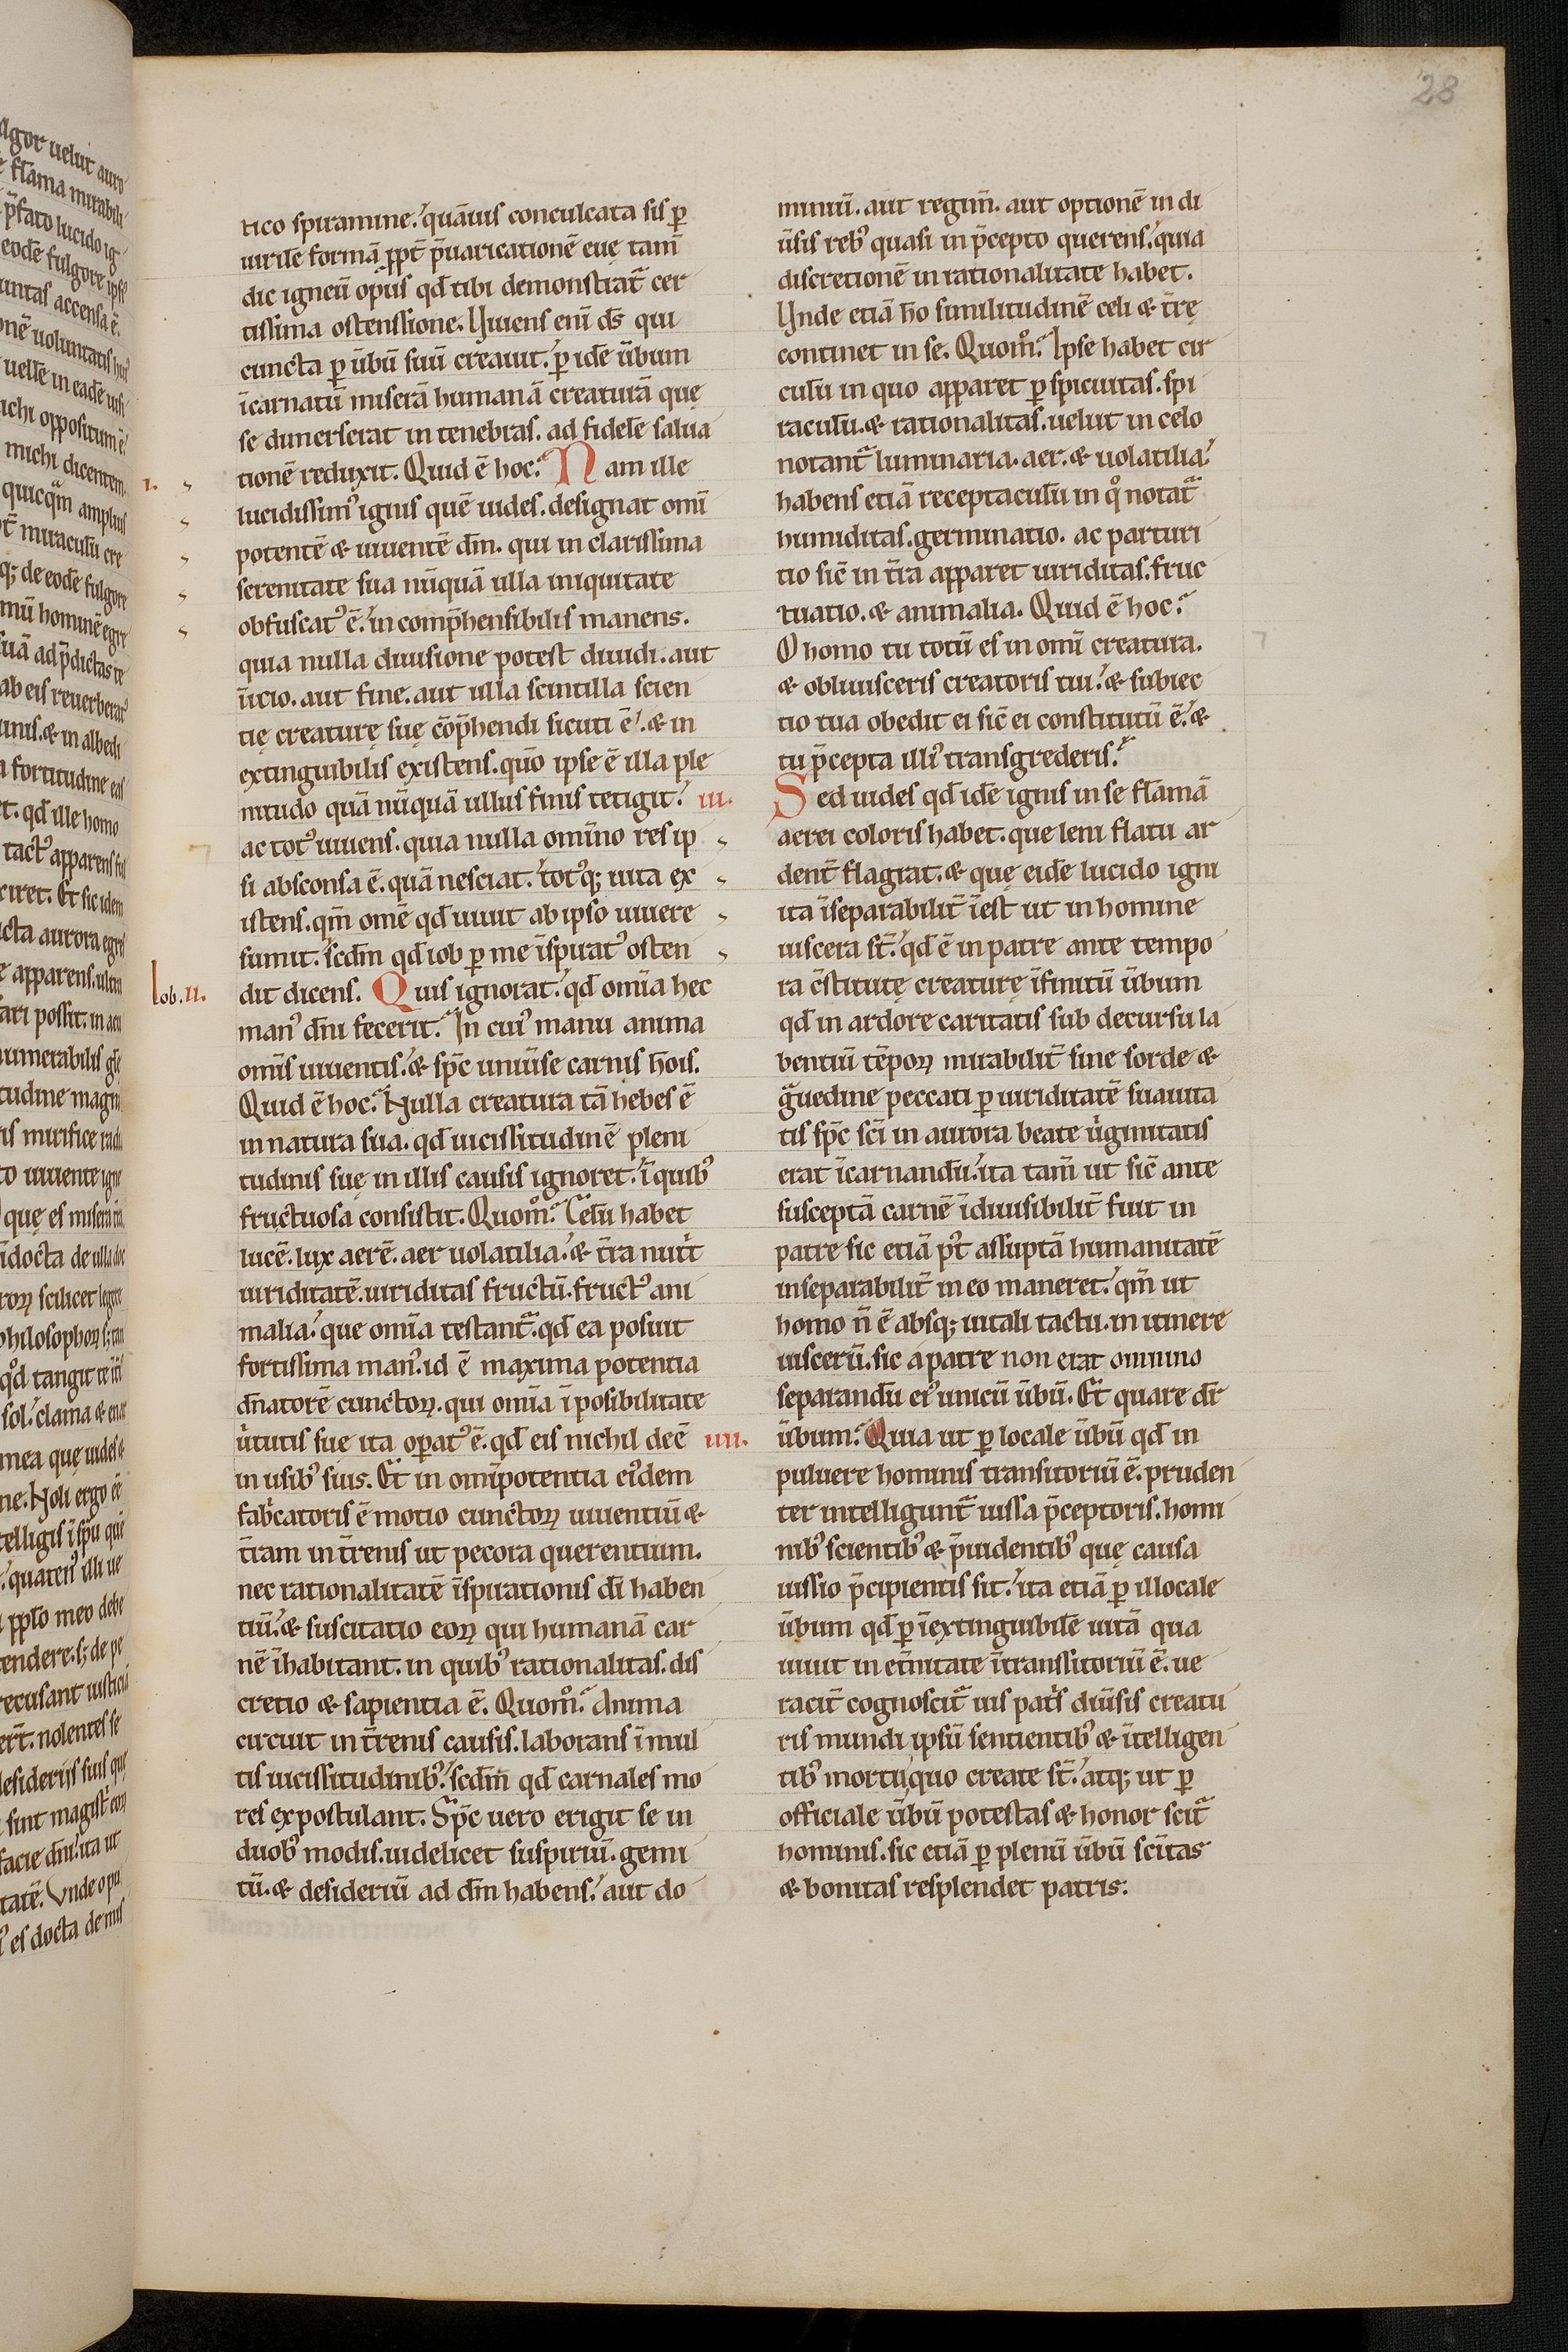 28
tico spiramine. quāuis conculcata sis ꝑ
uirilē formā ꝓpt̄ p̄uaricationē euę tam̄
dic igneū opus qđ tibi demonstrat᷑ cer
tissima ostensione. Viuens eni ds̄ qui
cuncta ꝑ ūbū suū creauit. ꝑ idē ūbum
īcarnatū miserā humanā creaturā quę
se dimerserat in tenebras. ad fidelē salua
tionē reduxit. Quid ē hoc? Nam ille
i.
lucidissimꝰ ignis quē uides. designat omī
potentē & uiuentē dm̄. qui in clarissima
serenitate sua nūquā ulla iniquitate
obfuscatꝰ ē. incomp̄hensibilis manens.
quia nulla diuisione potest diuidi. aut
īicio. aut fine. aut ulla scintilla scien
tię creaturę suę cōp̄hendi sicuti ē. & in
extinguibilis existens. qūo ipse ē illa ple
nitudo quā nūquā ullus finis tetigit. iii.
ac totꝰ uiuens. quia nulla omīno res ip
si absconsa ē. quā nesciat. totꝰq; uita ex
istens. qm̄ omē qđ uiuit ab ipso uiuere
sumit. scdm̄ qđ iob ꝑ me īspiratꝰ osten
Iob. ii.
dit dicens. Quis ignorat. qđ omīa hec
manꝰ dn̄i fecerit? In cuiꝰ manu anima
omīs uiuentis. & sp̄c uniūse carnis h̄ois.
Quid ē hoc? Nulla creatura tā hebes ē
in natura sua. qđ uicissitudinē pleni
tudinis suę in illis causis ignoret. ī quibꝰ
fructuosa consistit. Quom̊? Celū habet
lucē. lux aerē. aer uolatilia. & t̄ra nutit
uiriditatē. uiriditas fructū. fructꝰ ani
malia. que omīa testant᷑. qđ ea posuit
fortissima manꝰ. id ē maxima potentia
dn̄atorē cunctoꝝ. qui omīa ī posibilitate
uͥtutis suę ita oꝑatꝰ ē. qđ eis nichil deē iiii.
in usibꝰ suis. Et in omīpotentia eiꝰdem
fabͥcatoris ē motio cunctoꝝ uiuentiū &
t̄ram in t̄renis ut pecora querentium.
nec rationalitatē īspirationis dī haben
tiū. & suscitatio eoꝝ qui humanā car
nē īhabitant. in quibꝰ rationalitas. dis
cretio & sapientia ē. Quom̊? Anima
circuit in t̄renis causis. laborans ī mul
tis uicissitudinibꝰ. scdm̄ qđ carnales mo
res expostulant. Sp̄c uero erigit se in
duobꝰ modis. uidelicet suspiriū. gemi
tū. & desideriū ad dm̄ habens. aut do
miniū. aut regim̄. aut optionē in di
ūsis rebꝰ quasi in p̄cepto querens. quia
discretionē in rationalitate habet.
Vnde etiā h̄o similitudinē celi & t̄rę
continet in se. Quom̊? Ipse habet cir
culū in quo apparet ꝑspicuitas. spi
raculū. & rationalitas. uelut in celo
notant᷑ luminaria. aer. & uolatilia.
habens etiā receptaculū in qͦ notat᷑
humiditas. germinatio. ac parturi
tio sic̄ in t̄ra apparet uiriditas. fruc
tuatio. & animalia. Quid ē hoc?
O homo tu totū es in omī creatura.
& obliuisceris creatoris tui. & subiec
tio tua obedit ei sic̄ ei constitutū ē. &
tu p̄cepta illiꝰ transgrederis?
Sed uides qđ idē ignis in se flāmā
aerei coloris habet. que leni flatu ar
dent̄ flagrat. & quę eidē lucido igni
ita īseparabilit̄ īest ut in homine
uiscera st̄. qđ ē in patre ante tempo
ra c̄stitutę creaturę īfinitū ūbum
qđ in ardore caritatis sub decursu la
bentiū tēpoꝝ mirabilit̄ sine sorde &
gᷓuedine peccati ꝑ uiriditatē suauita
tis sp̄c sc̄i in aurora beate uͥginitatis
erat īcarnandū. ita tam̄ ut sic̄ ante
susceptā carnē īdiuisibilit̄ fuit in
patre sic etiā p̄t assuptā humanitatē
inseparabilit̄ in eo maneret. qm̄ ut
homo n̄ ē absq; uitali tactu. in itinere
uiscerū. sic a patre non erat omnino
separandū eiꝰ unicū ūbū. Et quare dr̄
ūbum? Quia ut ꝑ locale ūbū qđ in
puluere hominis transitoriū ē. pruden
ter intelligunt᷑ iussa p̄ceptoris. homi
nibꝰ scientibꝰ & p̄uidentibꝰ quę causa
iussio p̄cipientis sit. ita etiā ꝑ illocale
ūbum qđ ꝑ īextinguibilē uitā qua
uiuit in et̄nitate ītranssitoriū ē. ue
racit̄ cognoscit᷑ uis patͥs diūsis creatu
ris mundi ipsū sentientibꝰ & ītelligen
tibꝰ mortu quo create st̄. atq; ut ꝑ
officiale ūbū potestas & honor scit᷑
hominis. sic etiā ꝑ plenū ūbū scītas
& bonitas resplendet patris.